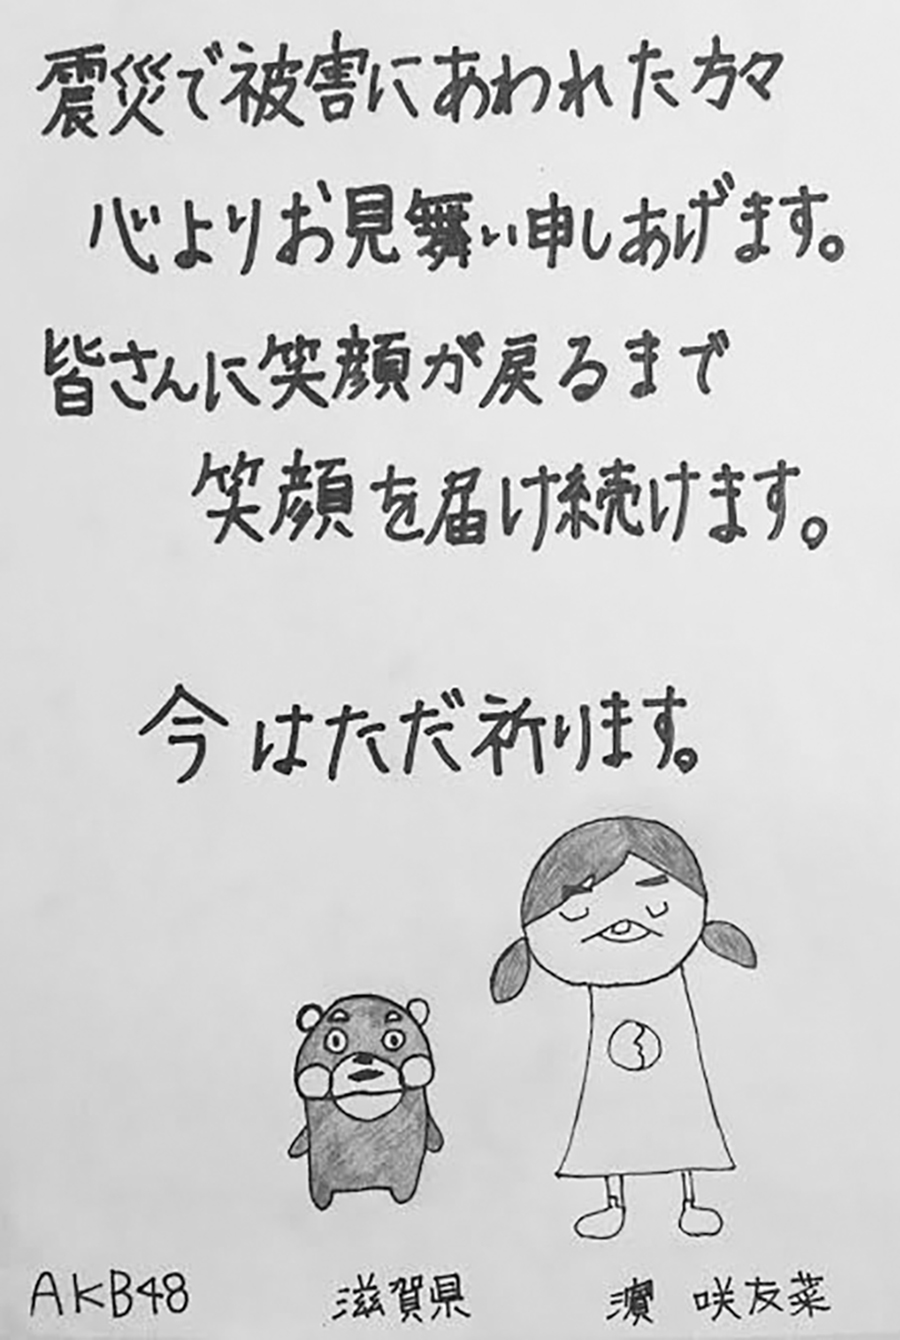 震災で被害にあわれた方々
心よりお見舞い申しあげます。
皆さんに笑顔が戻るまで
笑顔を届け続けます。
今はただ祈ります。
AKB48 滋賀県 濵 咲友菜